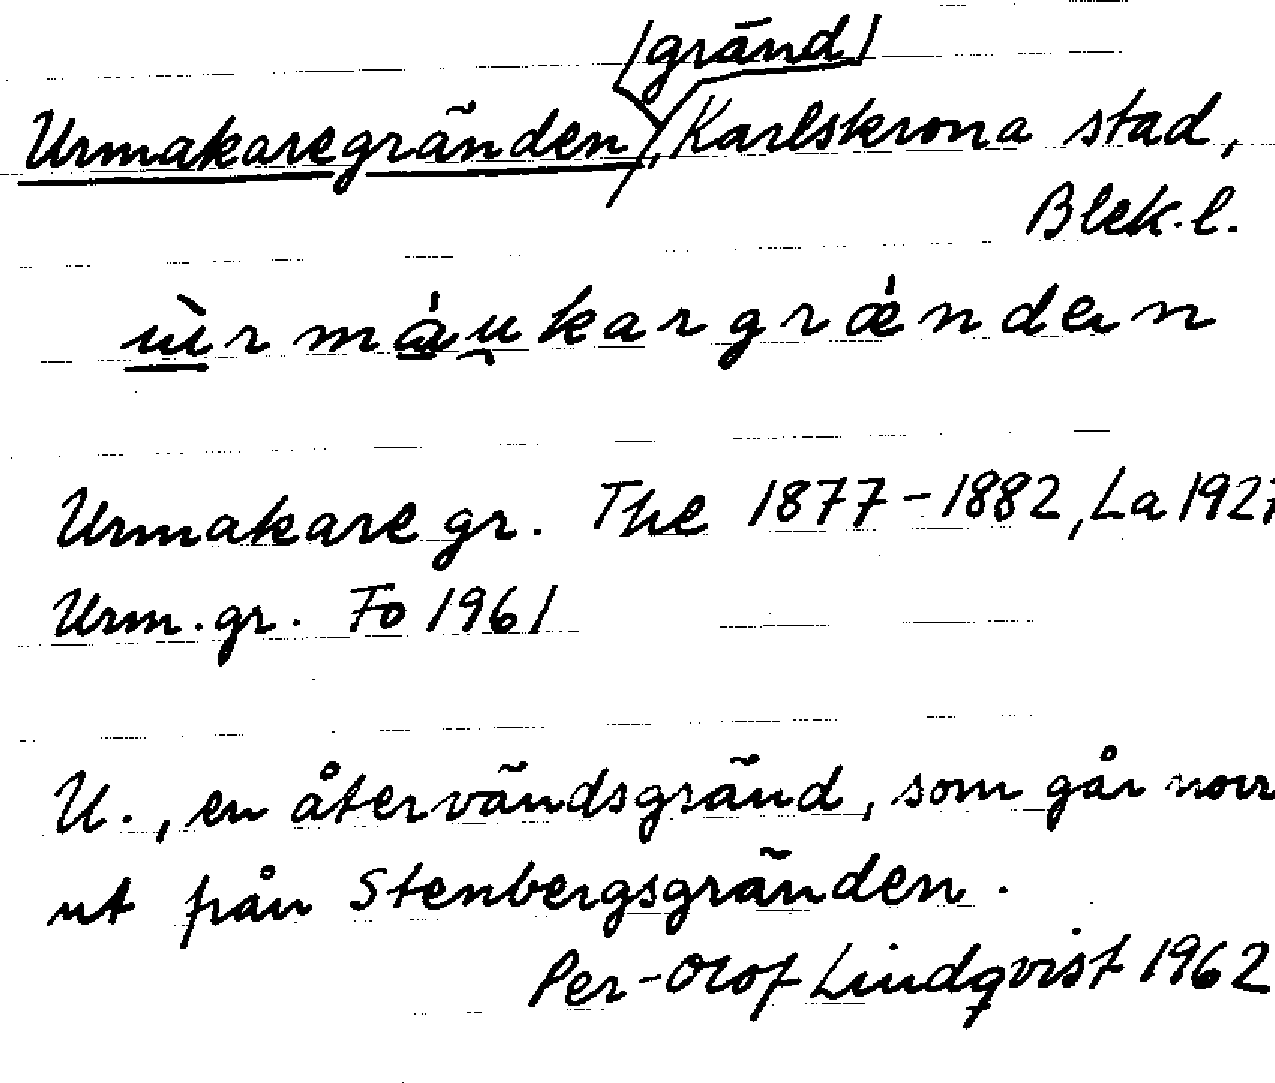 /gränd/
Urmakaregränden, Karlskrona stad,
Blek. l.
ùrmáu̯kargrǽnden
Urmakare gr. The 1877-1882, La 1927
Urm. gr. Fo 1961
U., en återvändsgränd, som går norr
ut från Stenbergsgränden.
Per-Olof Lindqvist 1962